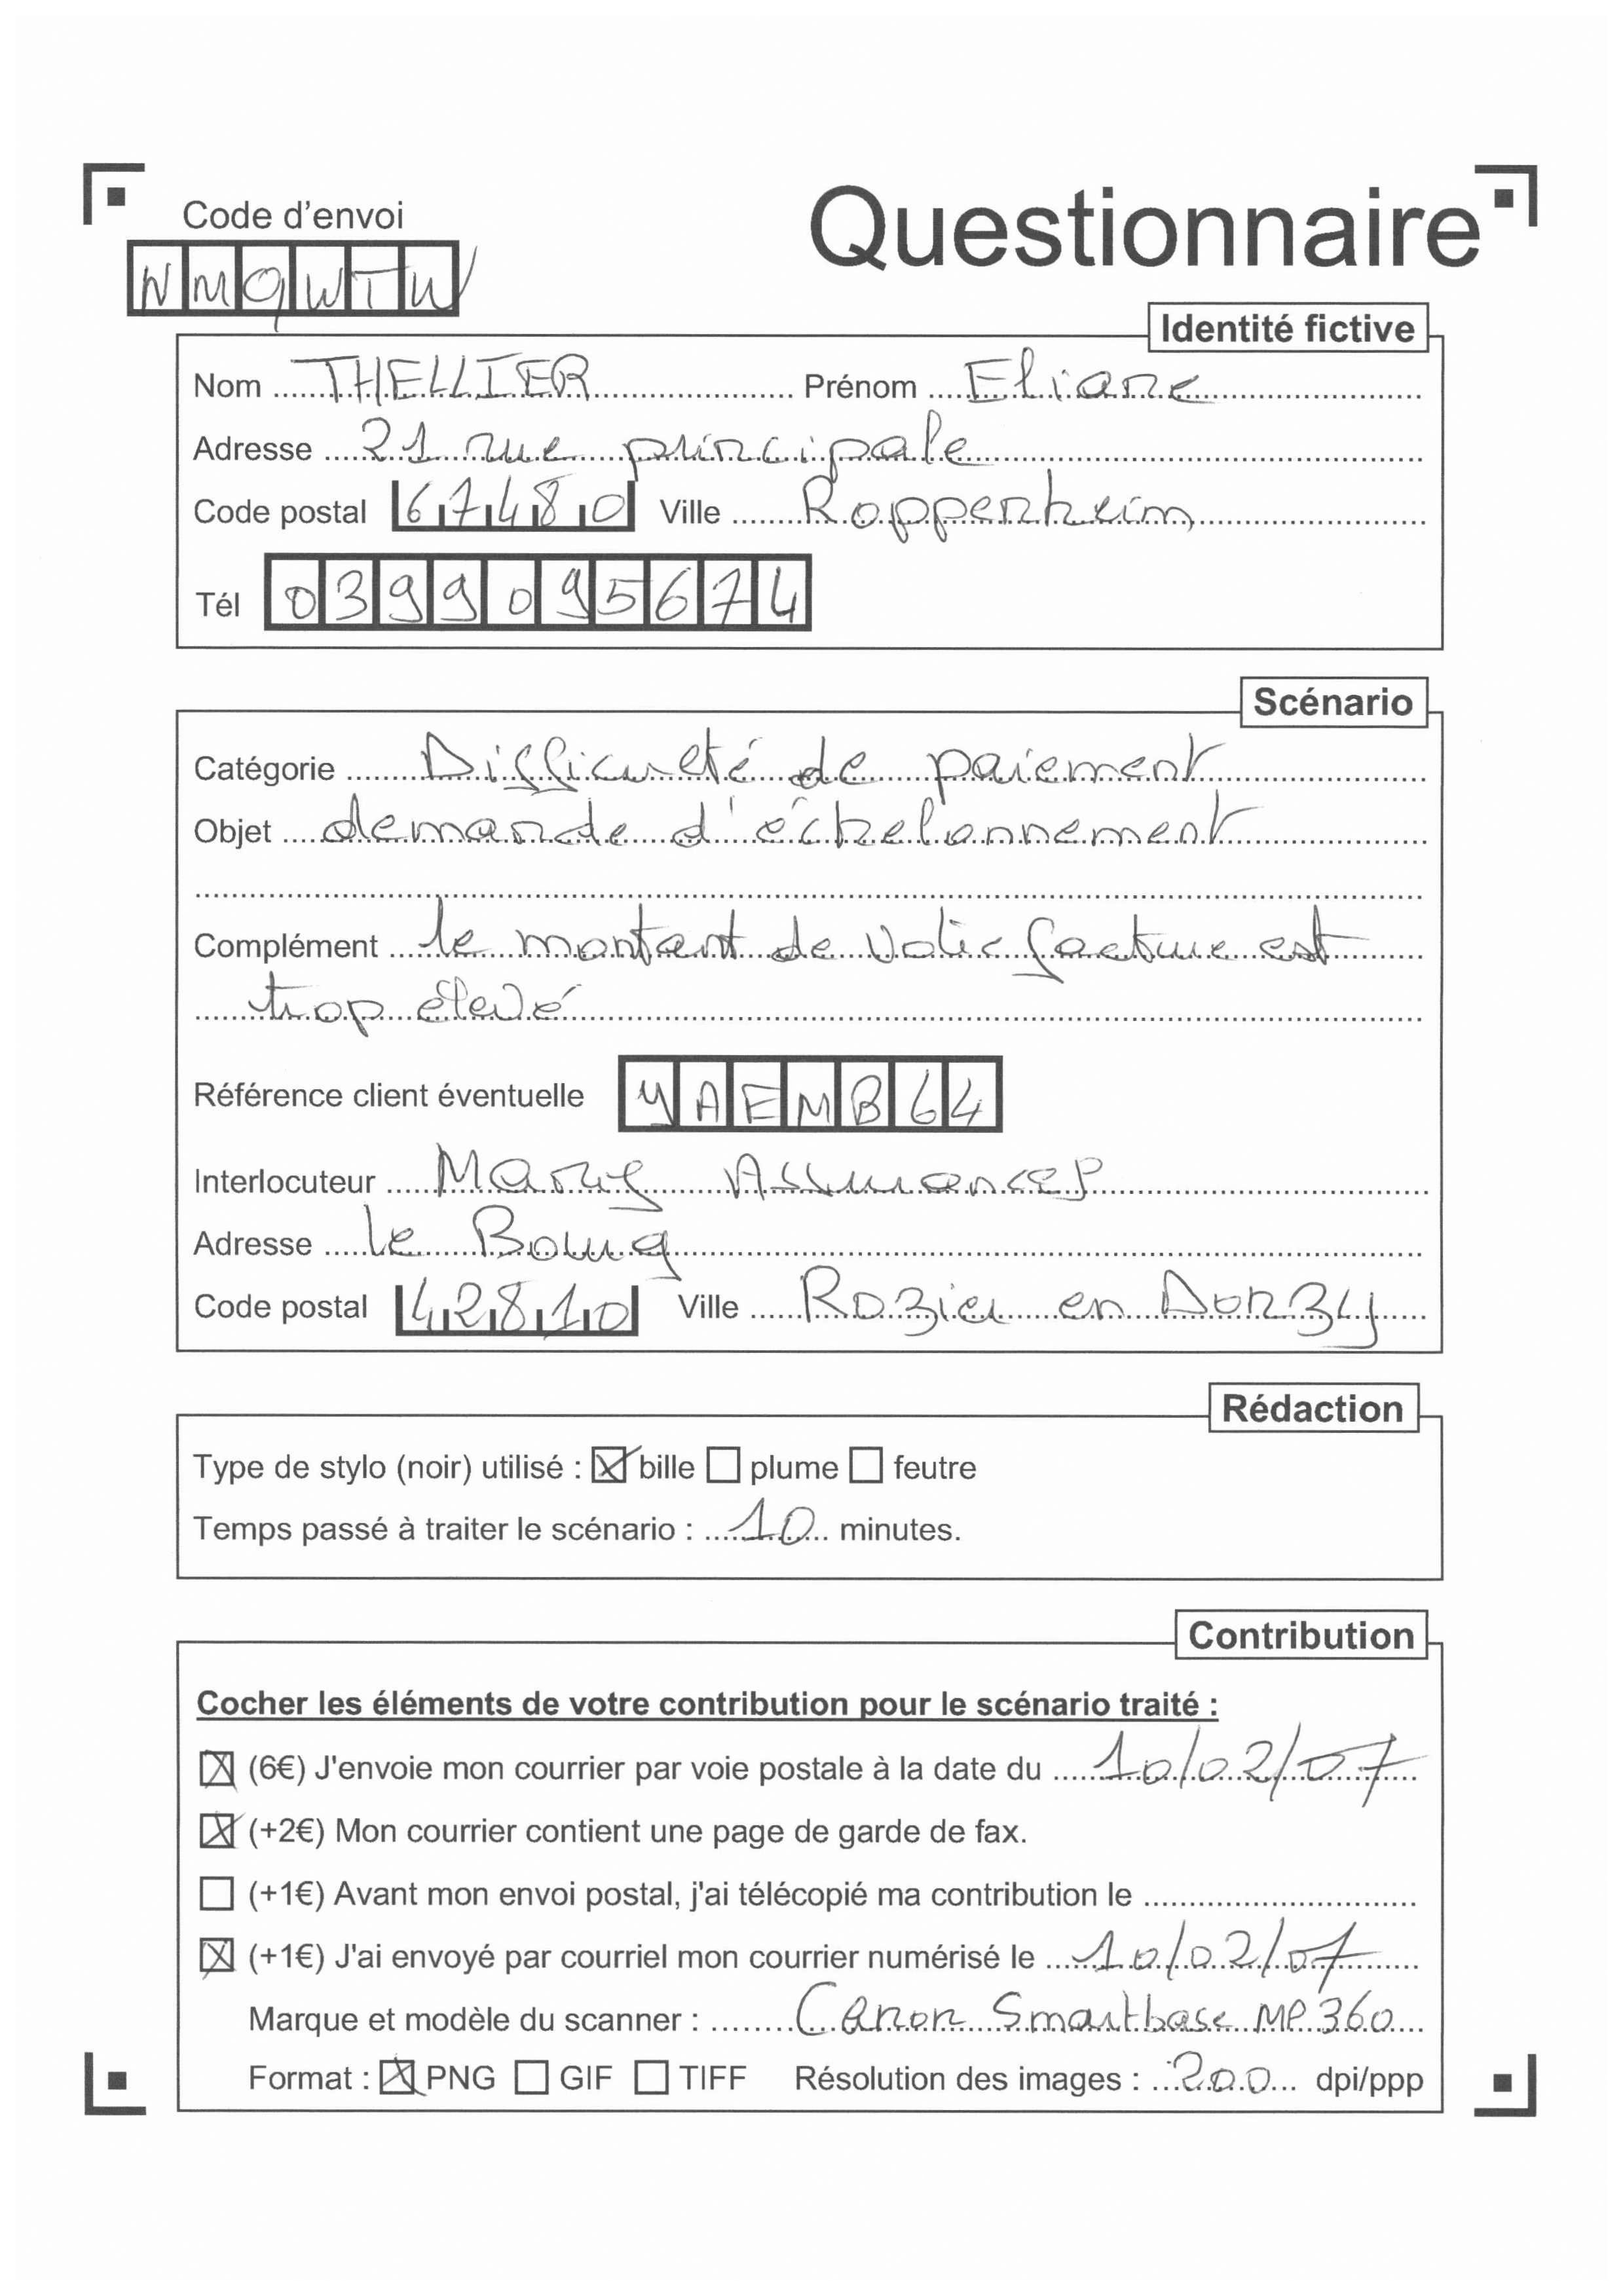 Code d'envoi
Questionnaire
NMQWTW
Identité fictive
Nom THELLIER Prénom Eliane
Adresse 21 rue principale
Code postal 67480 Ville Roppenheim
Tél 0399095674
Scénario
Catégorie Difficulté de paiement
Objet demande d'échelonnement
Complément le montant de votre facture est
trop élevé
Référence client éventuelle YAEMB64
Interlocuteur Assurances
Adresse le Bourg
Code postal 42810 Ville Rozier en Donzy
Rédaction
Type de stylo (noir) utilisé : ☒ bille ☐ plume ☐ feutre
Temps passé à traiter le scénario : 10 minutes.
Contribution
Cocher les éléments de votre contribution pour le scénario traité :
☒ (6€) J'envoie mon courrier par voie postale à la date du 10/02/07
☒ (+2€) Mon courrier contient une page de garde de fax.
☐ (+1€) Avant mon envoi postal, j'ai télécopié ma contribution le
☒ (+1€) J'ai envoyé par courriel mon courrier numérisé le 10/02/07
Marque et modèle du scanner : Canon Smartbase MP360
Format : ☒ PNG ☐ GIF ☐ TIFF Résolution des images : 200 dpi/ppp